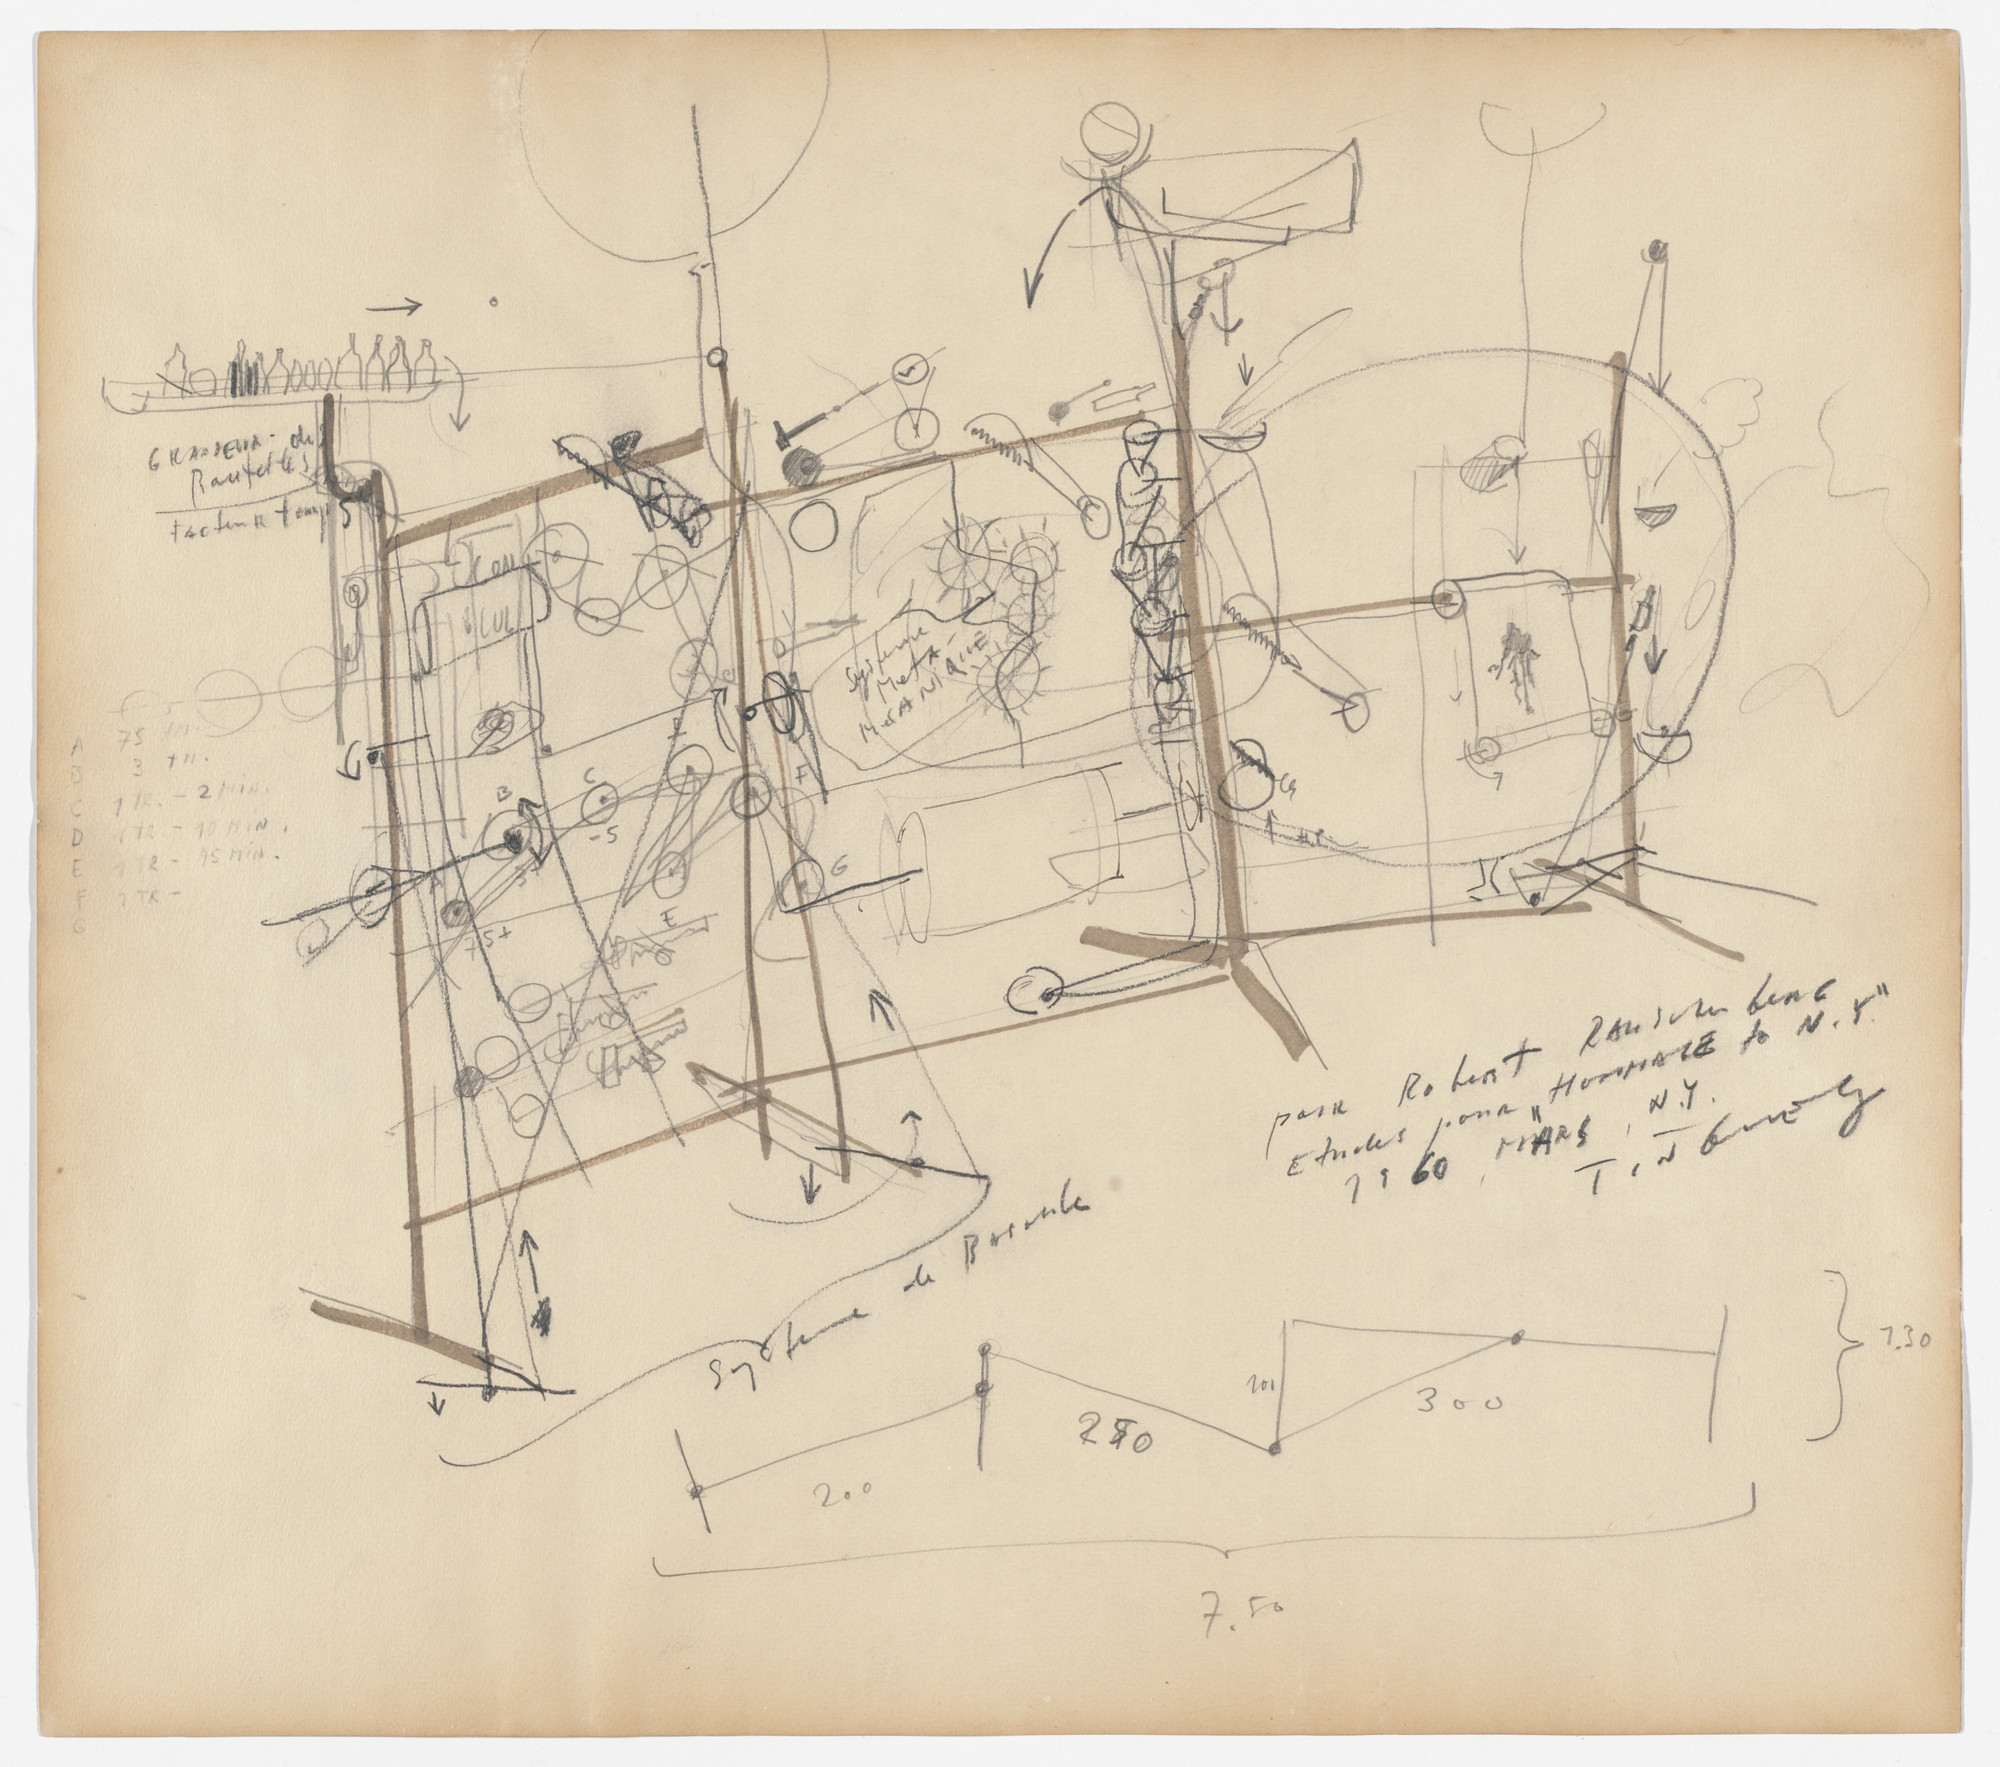 GRANDEUR - de
Bouteilles
facteur temps
Systeme
Meta-
MECANIQUE
A 75 TM.
B 3 TM.
C 1 TR. - 2 MIN.
D 1 TR. - 10 MIN.
E 1 TR - 15 MIN.
F 1 TR -
G
B
C
-5
F
G
E
75+
pour Robert Rauschenberg
Etudes pour "HOMMAGE to N.Y"
1960, MARS, N.Y.
Tinguely
Systeme de Bascule
200
250
201
300
7.30
7.50